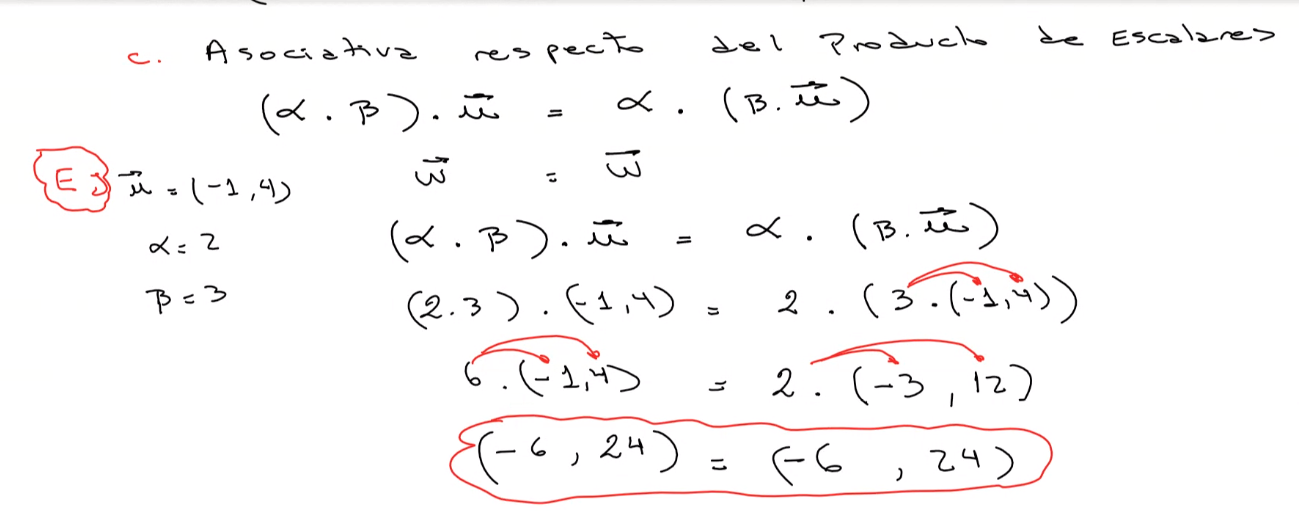 c. Asociativa respecto del Producto de Escalares
(α . β) . u⃗ = α . (β . u⃗)
w⃗ = w⃗
Ej u⃗ = (-1, 4)
(α . β) . u⃗ = α . (β . u⃗)
α = 2
(2 . 3) . (-1, 4) = 2 . (3 . (-1, 4))
β = 3
6 . (-1, 4) = 2 . (-3, 12)
(-6, 24) = (-6, 24)